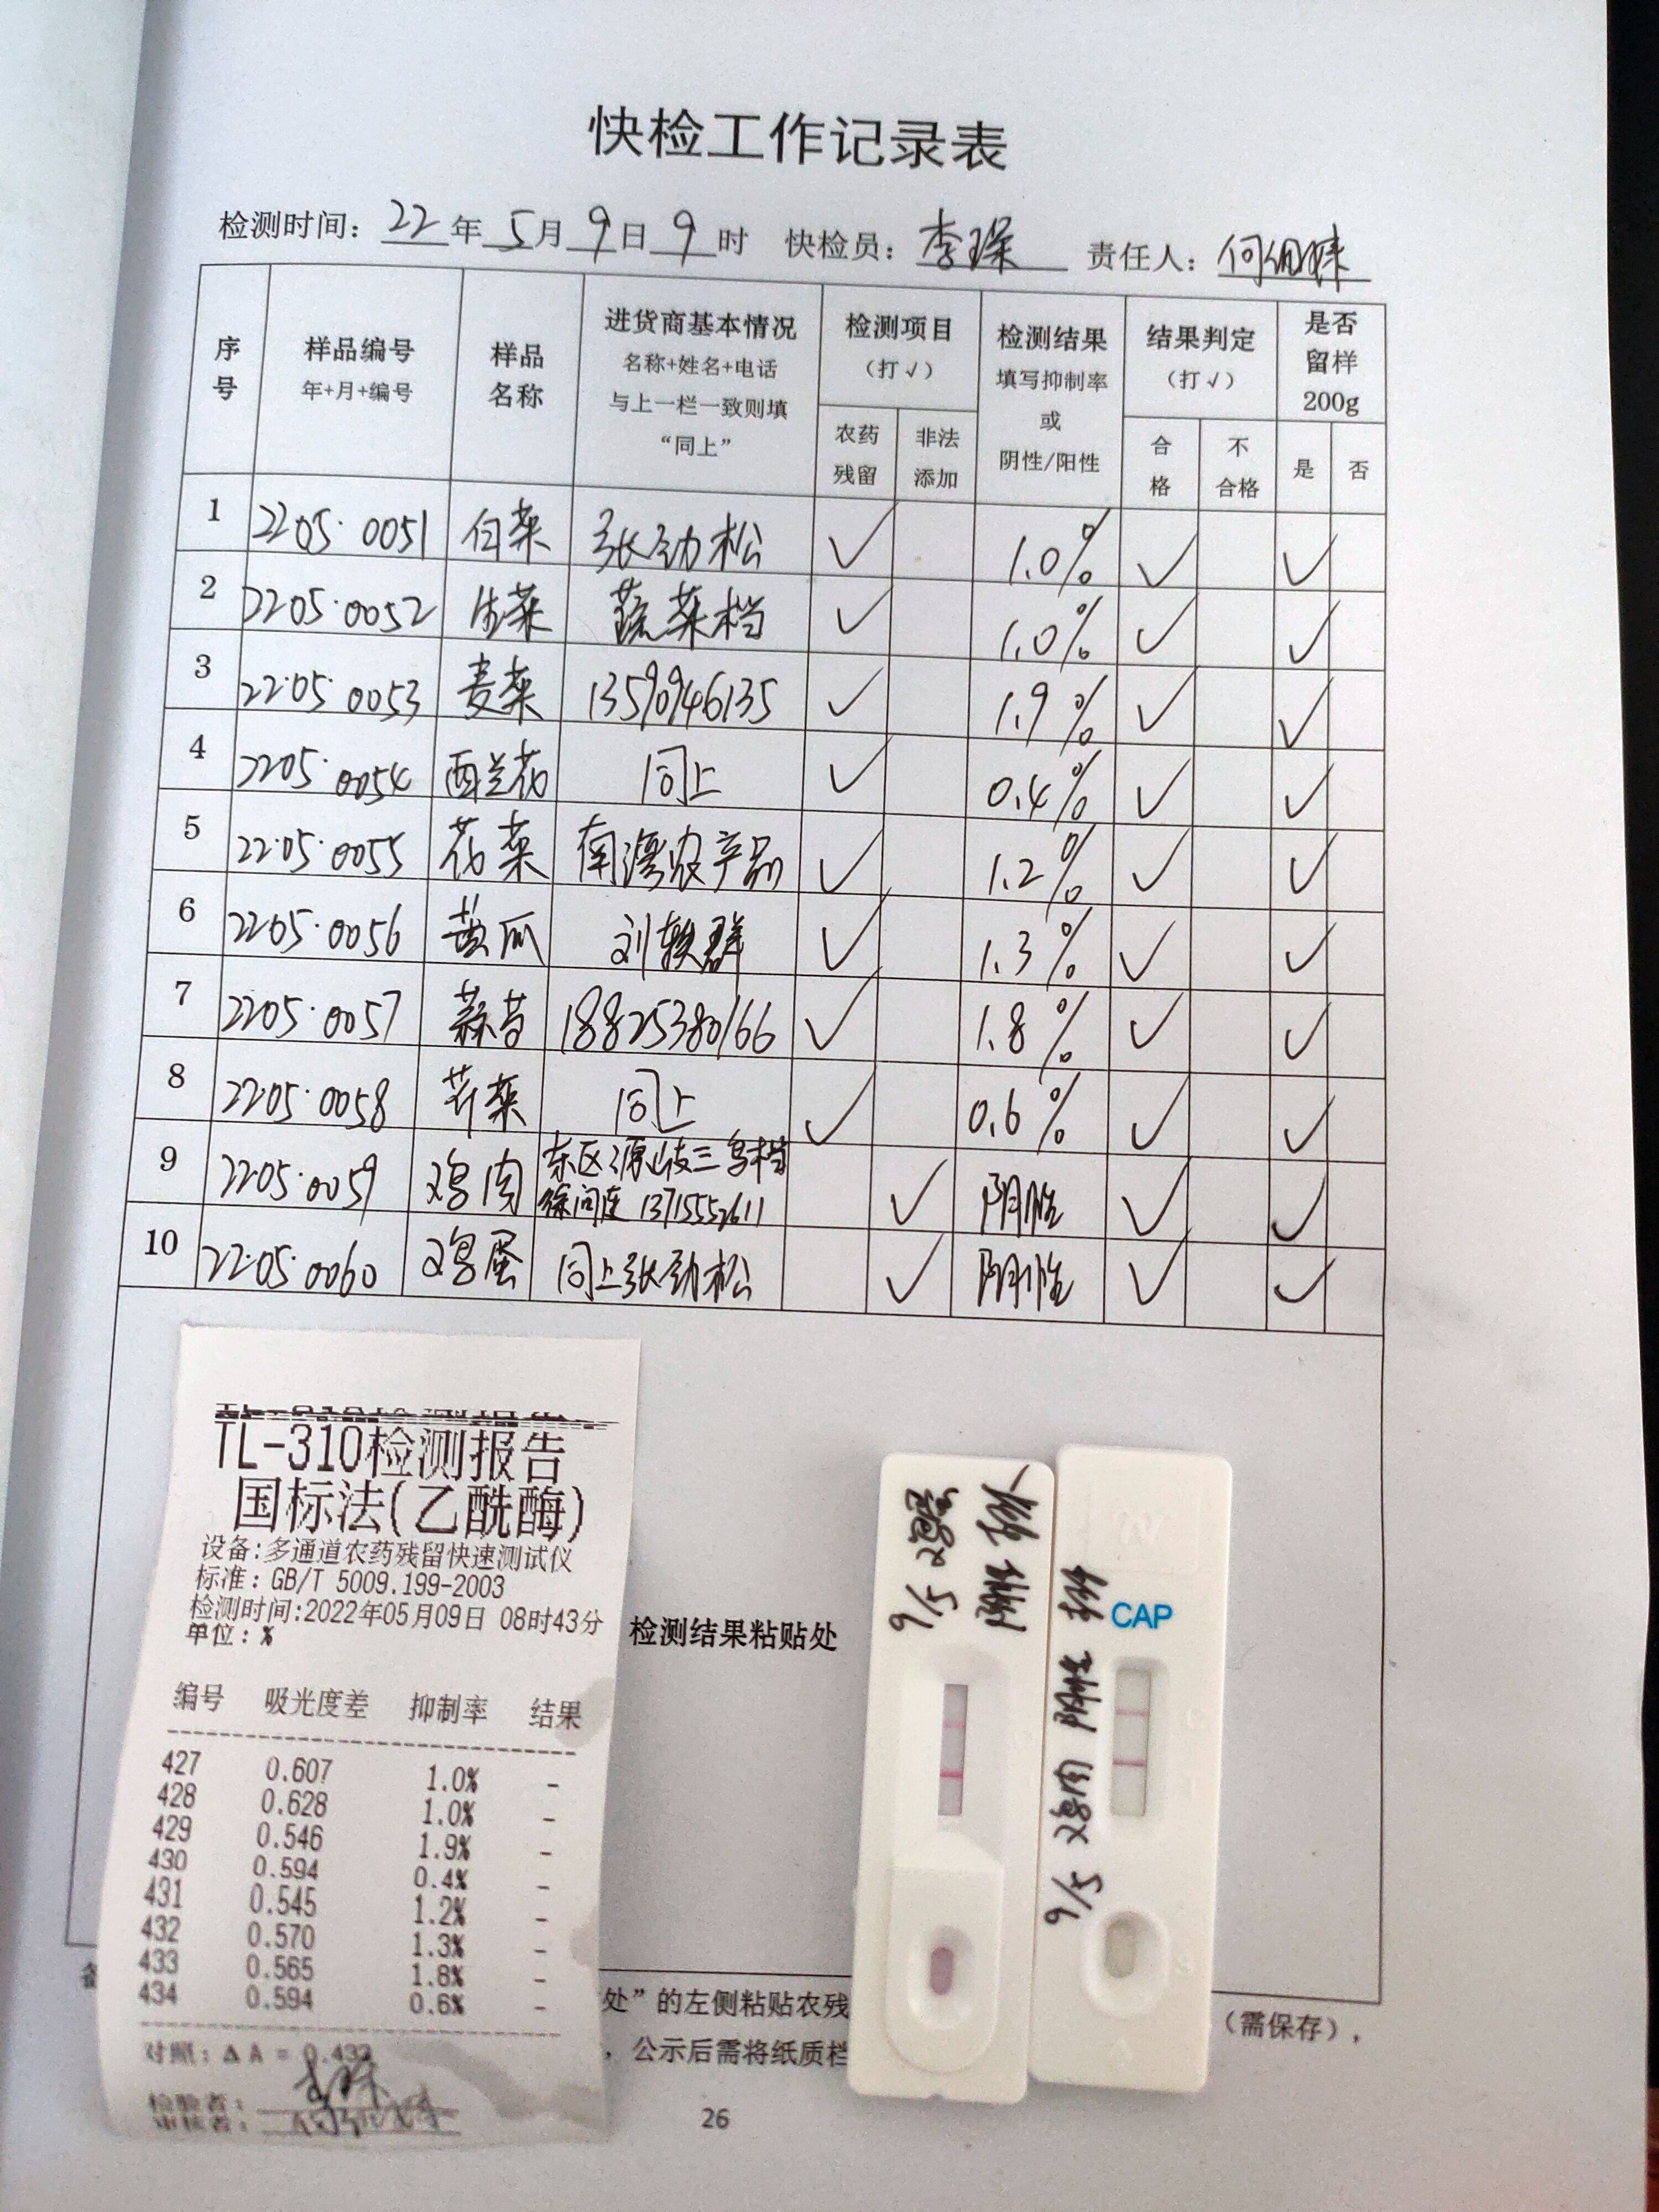 快检工作记录表
检测时间：22年5月9日9时 快检员：李琛 责任人：
序号 样品编号 年+月+编号 样品名称 进货商基本情况 名称+姓名+电话 与上一栏一致则填“同上” 检测项目（打√） 农药残留 非法添加 检测结果 填写抑制率或阴性/阳性 结果判定（打√） 合格 不合格 是否留样200g 是 否
1 2205·0051 白菜 张劲松 √ 1.0% √ √
2 2205·0052 生菜 蔬菜档 √ 1.0% √ √
3 2205·0053 麦菜 13590946135 √ 1.9% √ √
4 2205·0054 西兰花 同上 √ 0.4% √ √
5 2205·0055 花菜 南澳农产品 √ 1.2% √ √
6 2205·0056 黄瓜 刘轶群 √ 1.3% √ √
7 2205·0057 蒜苔 18825380166 √ 1.8% √ √
8 2205·0058 芹菜 同上 √ 0.6% √ √
9 2205·0059 鸡肉 东区源山枝三鸟档 √ 阴性 √ √
13715552611
10 2205·0060 鸡蛋 同上张劲松 √ 阴性 √ √
TL-310检测报告
国标法(乙酰酶)
设备:多通道农药残留快速测试仪
标准：GB/T 5009.199-2003
检测时间:2022年05月09日 08时43分
单位：%
编号 吸光度差 抑制率 结果
427 0.607 1.0% -
428 0.628 1.0% -
429 0.546 1.9% -
430 0.594 0.4% -
431 0.545 1.2% -
432 0.570 1.3% -
433 0.565 1.8% -
434 0.594 0.6% -
对照：ΔA = 0.432
检验者：李琛
审核者：
检测结果粘贴处
9/5 鸡蛋
阴性
CAP
9/5 鸡肉 阴性
处”的左侧粘贴农残
（需保存），
，公示后需将纸质档
26